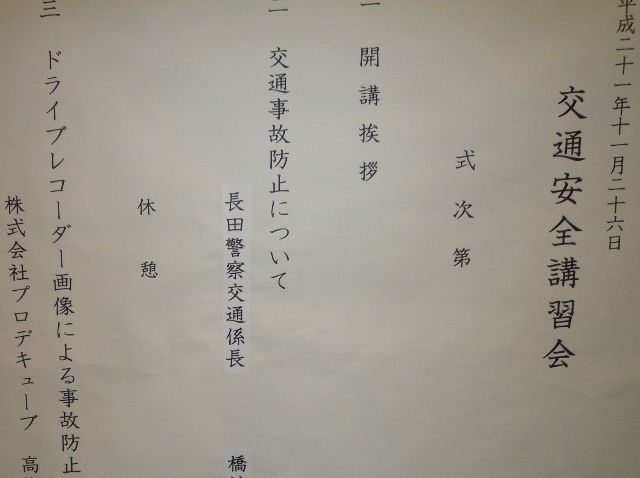 平成二十一年十一月二十六日
交通安全講習会
式次第
一 開講挨拶
二 交通事故防止について
長田警察交通係長 橋
休憩
三 ドライブレコーダー画像による事故防止
株式会社プロデキューブ 高